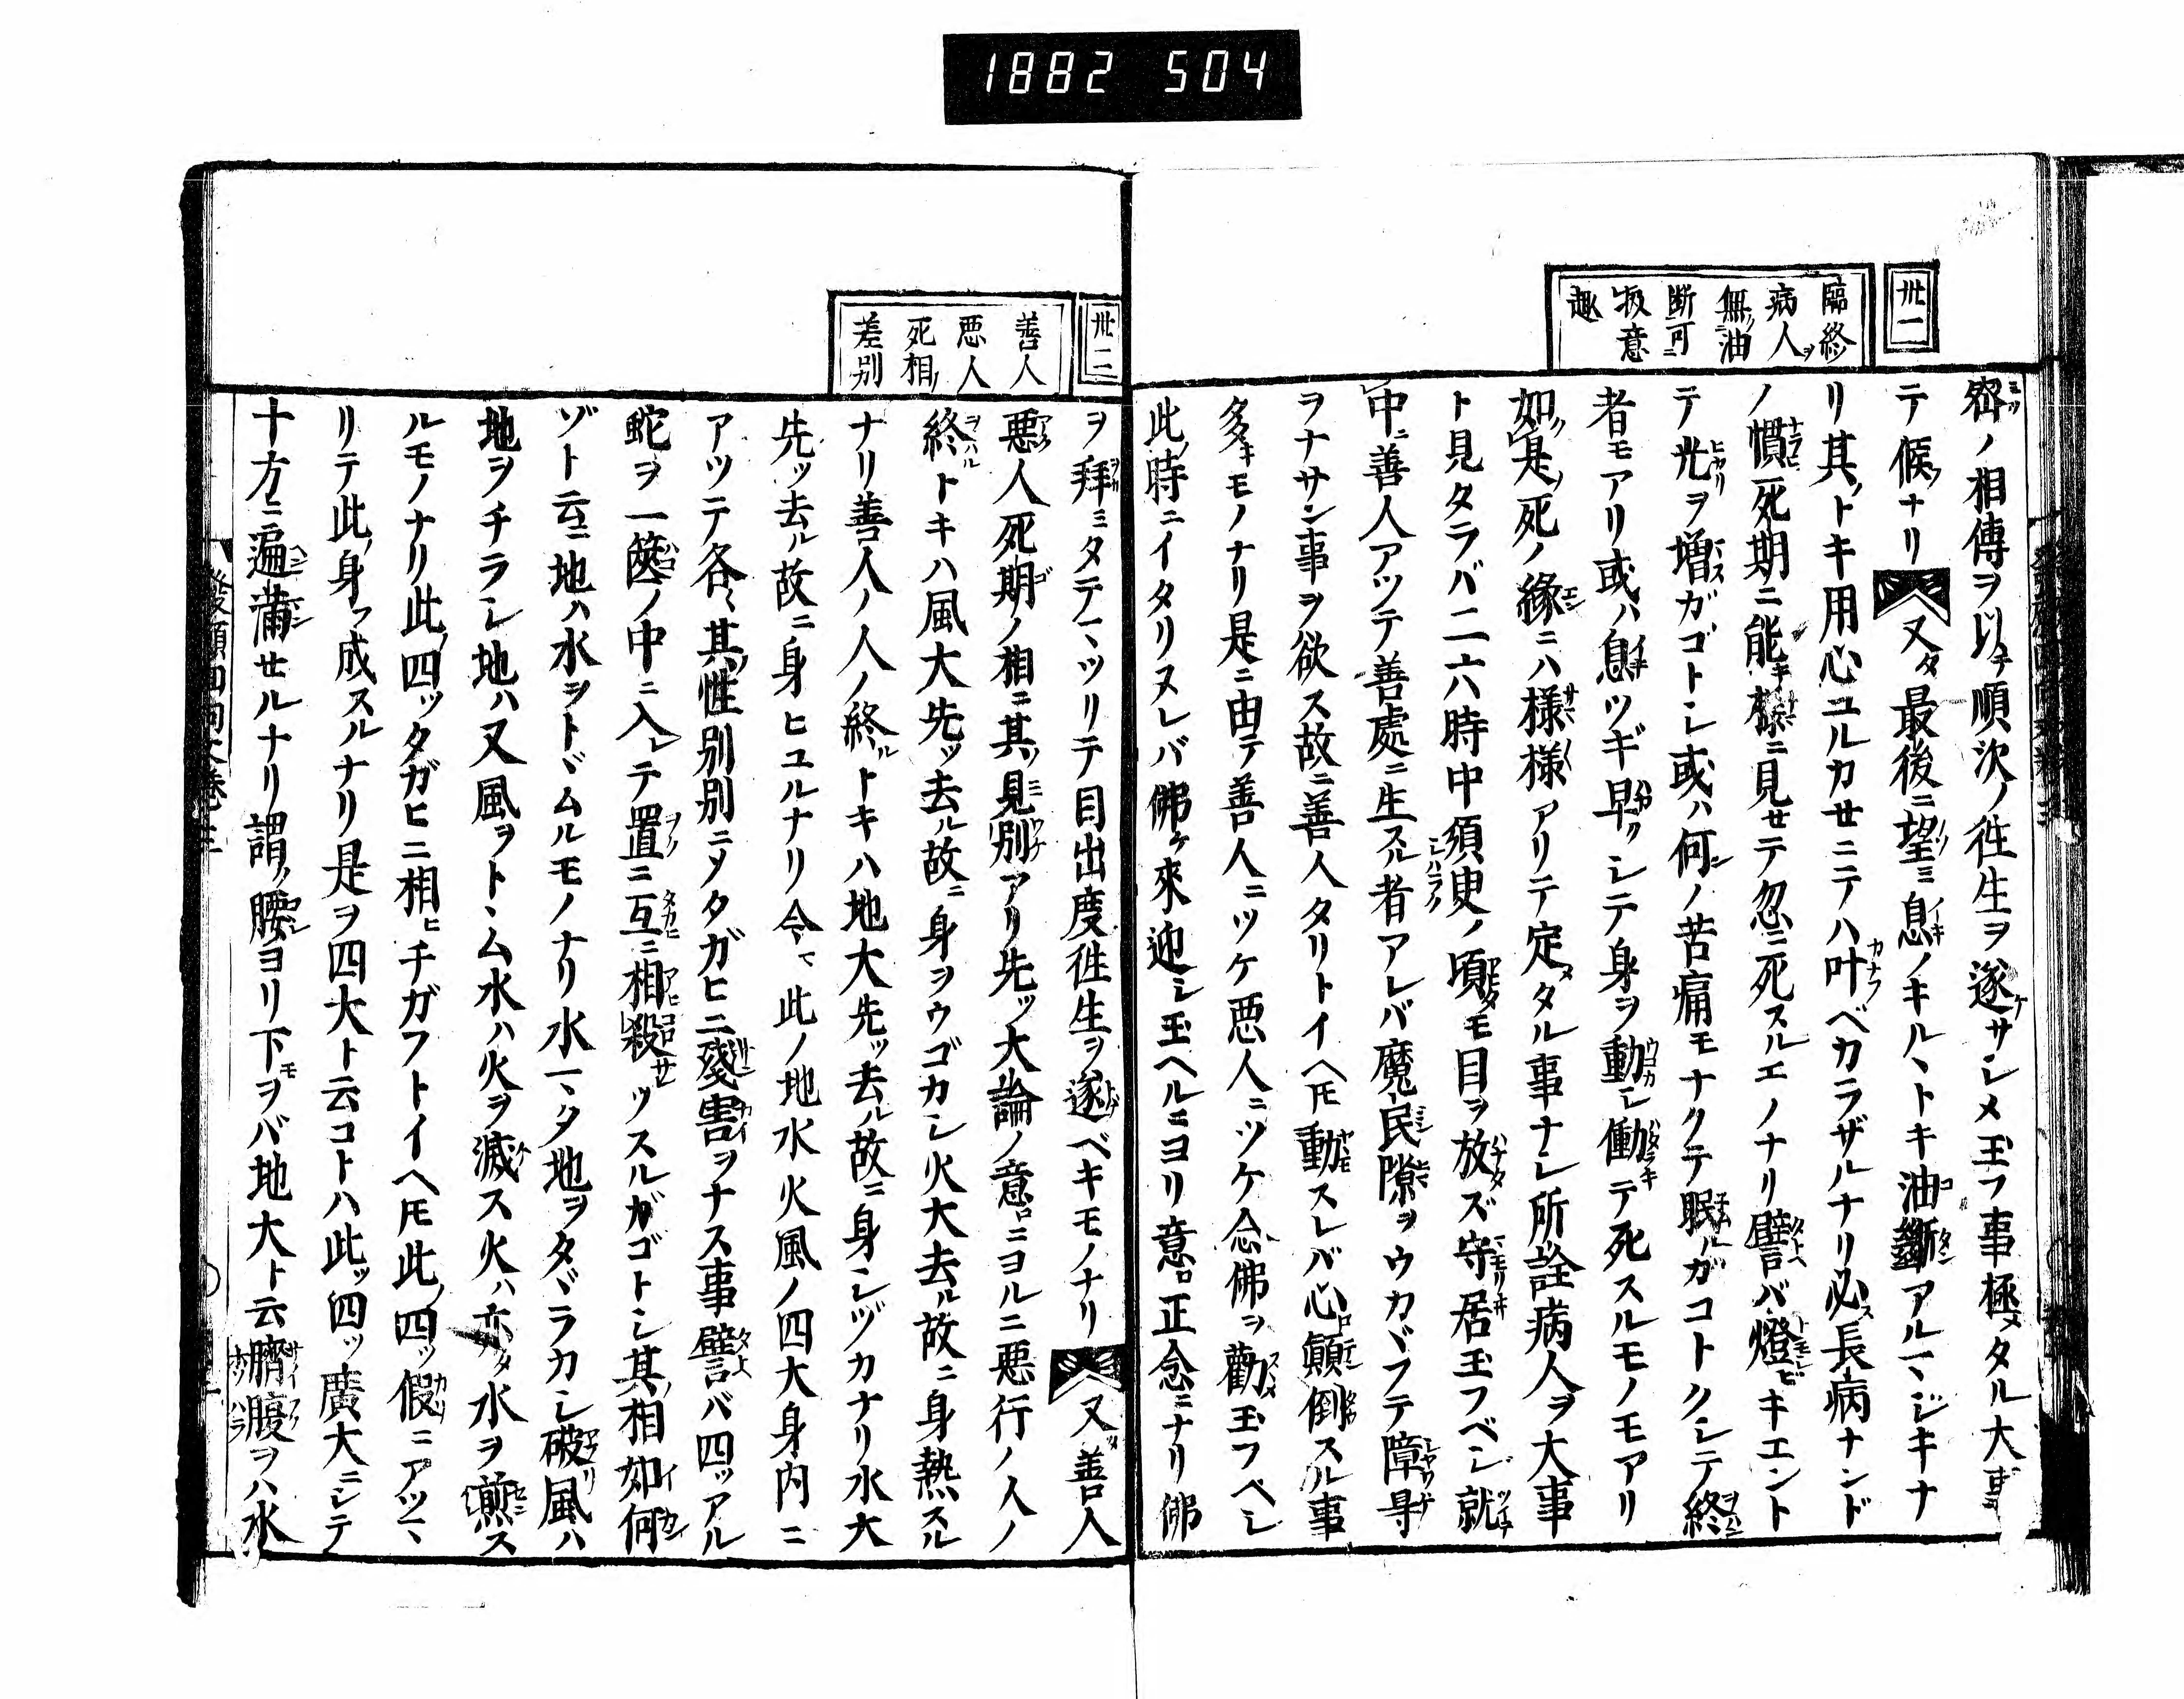 1882 504
卅一
臨終
病人ヲ
無ノ油
断可ニ
扱意
趣
密ノ相傳ヲ以テ順次ノ徃生ヲ遂サシメ玉フ事極メタル大事
ニテ候ナリ又タ最後ニ望ミ息ノキルヽトキ油斷アルマジキナ
リ其トキ用心ユルカセニテハ叶ベカラザルナリ必ス長病ナンド
ノ慣死期ニ能キ樣ニ見セテ忽ニ死スルエノナリ譬バ燈ビキエント
テ光ヲ増スガゴトシ或ハ何ノ苦痛モナクテ眠ルガコトクシテ終
者モアリ或ハ息ツギ早クシテ身ヲ動シ働テ死スルモノモアリ
如是ノ死ノ縁ニハ様様アリテ定メタル事ナレ所詮病人ヲ大事
ト見タラバ二六時中須臾ノ頃モ目ヲ放ズ守居玉フベシ就
中ニ善人アツテ善處ニ生スル者アレバ魔民隙ヲウカヾフテ障㝵
ヲナサン事ヲ欲ス故ニ善人タリトイヘ𪜈動スレバ心顛倒スル事
多キモノナリ是ニ由テ善人ニツケ悪人ニツケ念佛ヲ勸玉フベシ
此時ニイタリヌレバ佛ケ來迎シ玉ヘルニヨリ意ロ正念ニナリ佛
卅二
善人
悪人
死相ノ
差別
ヲ拜ミタテマツリテ目出度徃生ヲ遂ベキモノナリ又善人
悪人死期ノ相ニ其見別アリ先ッ大論ノ意ロニヨルニ悪行ノ人ノ
終トキハ風大先ッ去ル故ニ身ヲウゴカシ火大去ル故ニ身熱スル
ナリ善人ノ人ノ終ルトキハ地大先ッ去ル故ニ身シヅカナリ水大
先ッ去ル故ニ身ヒユルナリ今マ此ノ地水火風ノ四大身内ニ
アツテ各ヽ其性別別ニメタガヒニ殘害ヲナス事譬バ四ッアル
蛇ヲ一篋ノ中ニ入レテ置ニ互ニ相殺ッスルガゴトシ其相如何
ゾト云ニ地ハ水ヲトヾムルモノナリ水マタ地ヲタヾラカシ破風ハ
地ヲチラシ地ハ又風ヲトヽム水ハ火ヲ滅ス火ハ亦タ水ヲ煎ス
ルモノナリ此四ッタガヒニ相ヒチガフトイヘ𪜈此四ッ假ニアツマ
リテ此身ヲ成スルナリ是ヲ四大ト云コトハ此ッ四ッ廣大ニシテ
十方ニ遍滿セルナリ謂ク腰ヨリ下モヲバ地大ト云臍腹ヲハ水
發願四句文巻三